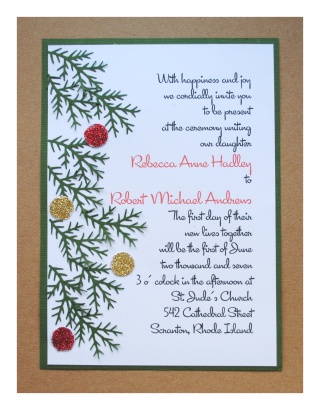 With happiness and joy
we cordially invite you
to be present
at the ceremony uniting
our daughter
Rebecca Anne Hadley
to
Robert Michael Andrews
The first day of their
new lives together
will be the first of June
two thousand and seven
3 o´ colock in the afternoon at
St. Jude´s Church
542 Cathedral Street
Scranton, Rhode Island